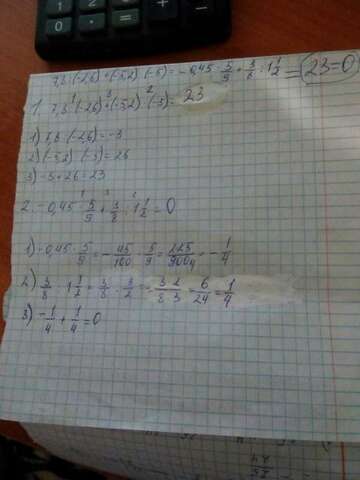 7,8:(-2,6)+(-52):(-2)=-0,45·5/9+3/8:1 1/2=(23=0)
1. 7,8:(-2,6)+(-52):(-2)=23
1) 7,8:(-2,6)=-3
2) (-52):(-2)=26
3) -3+26=23
2. -0,45·5/9+3/8:1 1/2=0
1) -0,45·5/9=-45/100·5/9=-225/900=-1/4
2) 3/8:1 1/2=3/8:3/2=3·2/8·3=6/24=1/4
3) -1/4+1/4=0